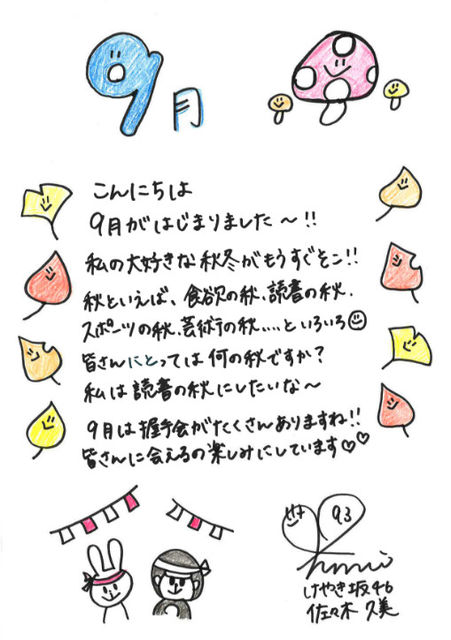 9月
こんにちは
9月がはじまりました〜!!
私の大好きな秋冬がもうすぐそこ!!
秋といえば、食欲の秋、読書の秋、
スポーツの秋、芸術の秋.....といろいろ
皆さんにとっては何の秋ですか?
私は読書の秋にしたいな〜
9月は握手会がたくさんありますね!!
皆さんに会えるの楽しみにしています♡♡
93
けやき坂46
佐々木久美